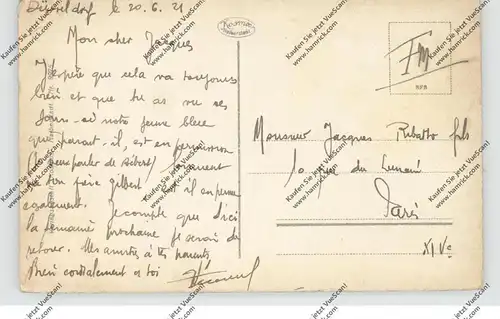 Düsseldorf le 20. 6. 21
Mon cher Jacques
J'espère que cela va toujours
bien et que tu as vu ces
jours-ci notre jeune bleu
que parait-il, est en permission
de ton père Gilbert est il en perme
également. Je compte que d'ici
la semaine prochaine je serai de
retour. Mes amitiés à tes parents,
Bien cordialement à toi
FM
Monsieur Jacques Ribatto fils
10 Rue du
Paris
XIVe
Kaufen Sie jetzt VueScan!
www.hamrick.com